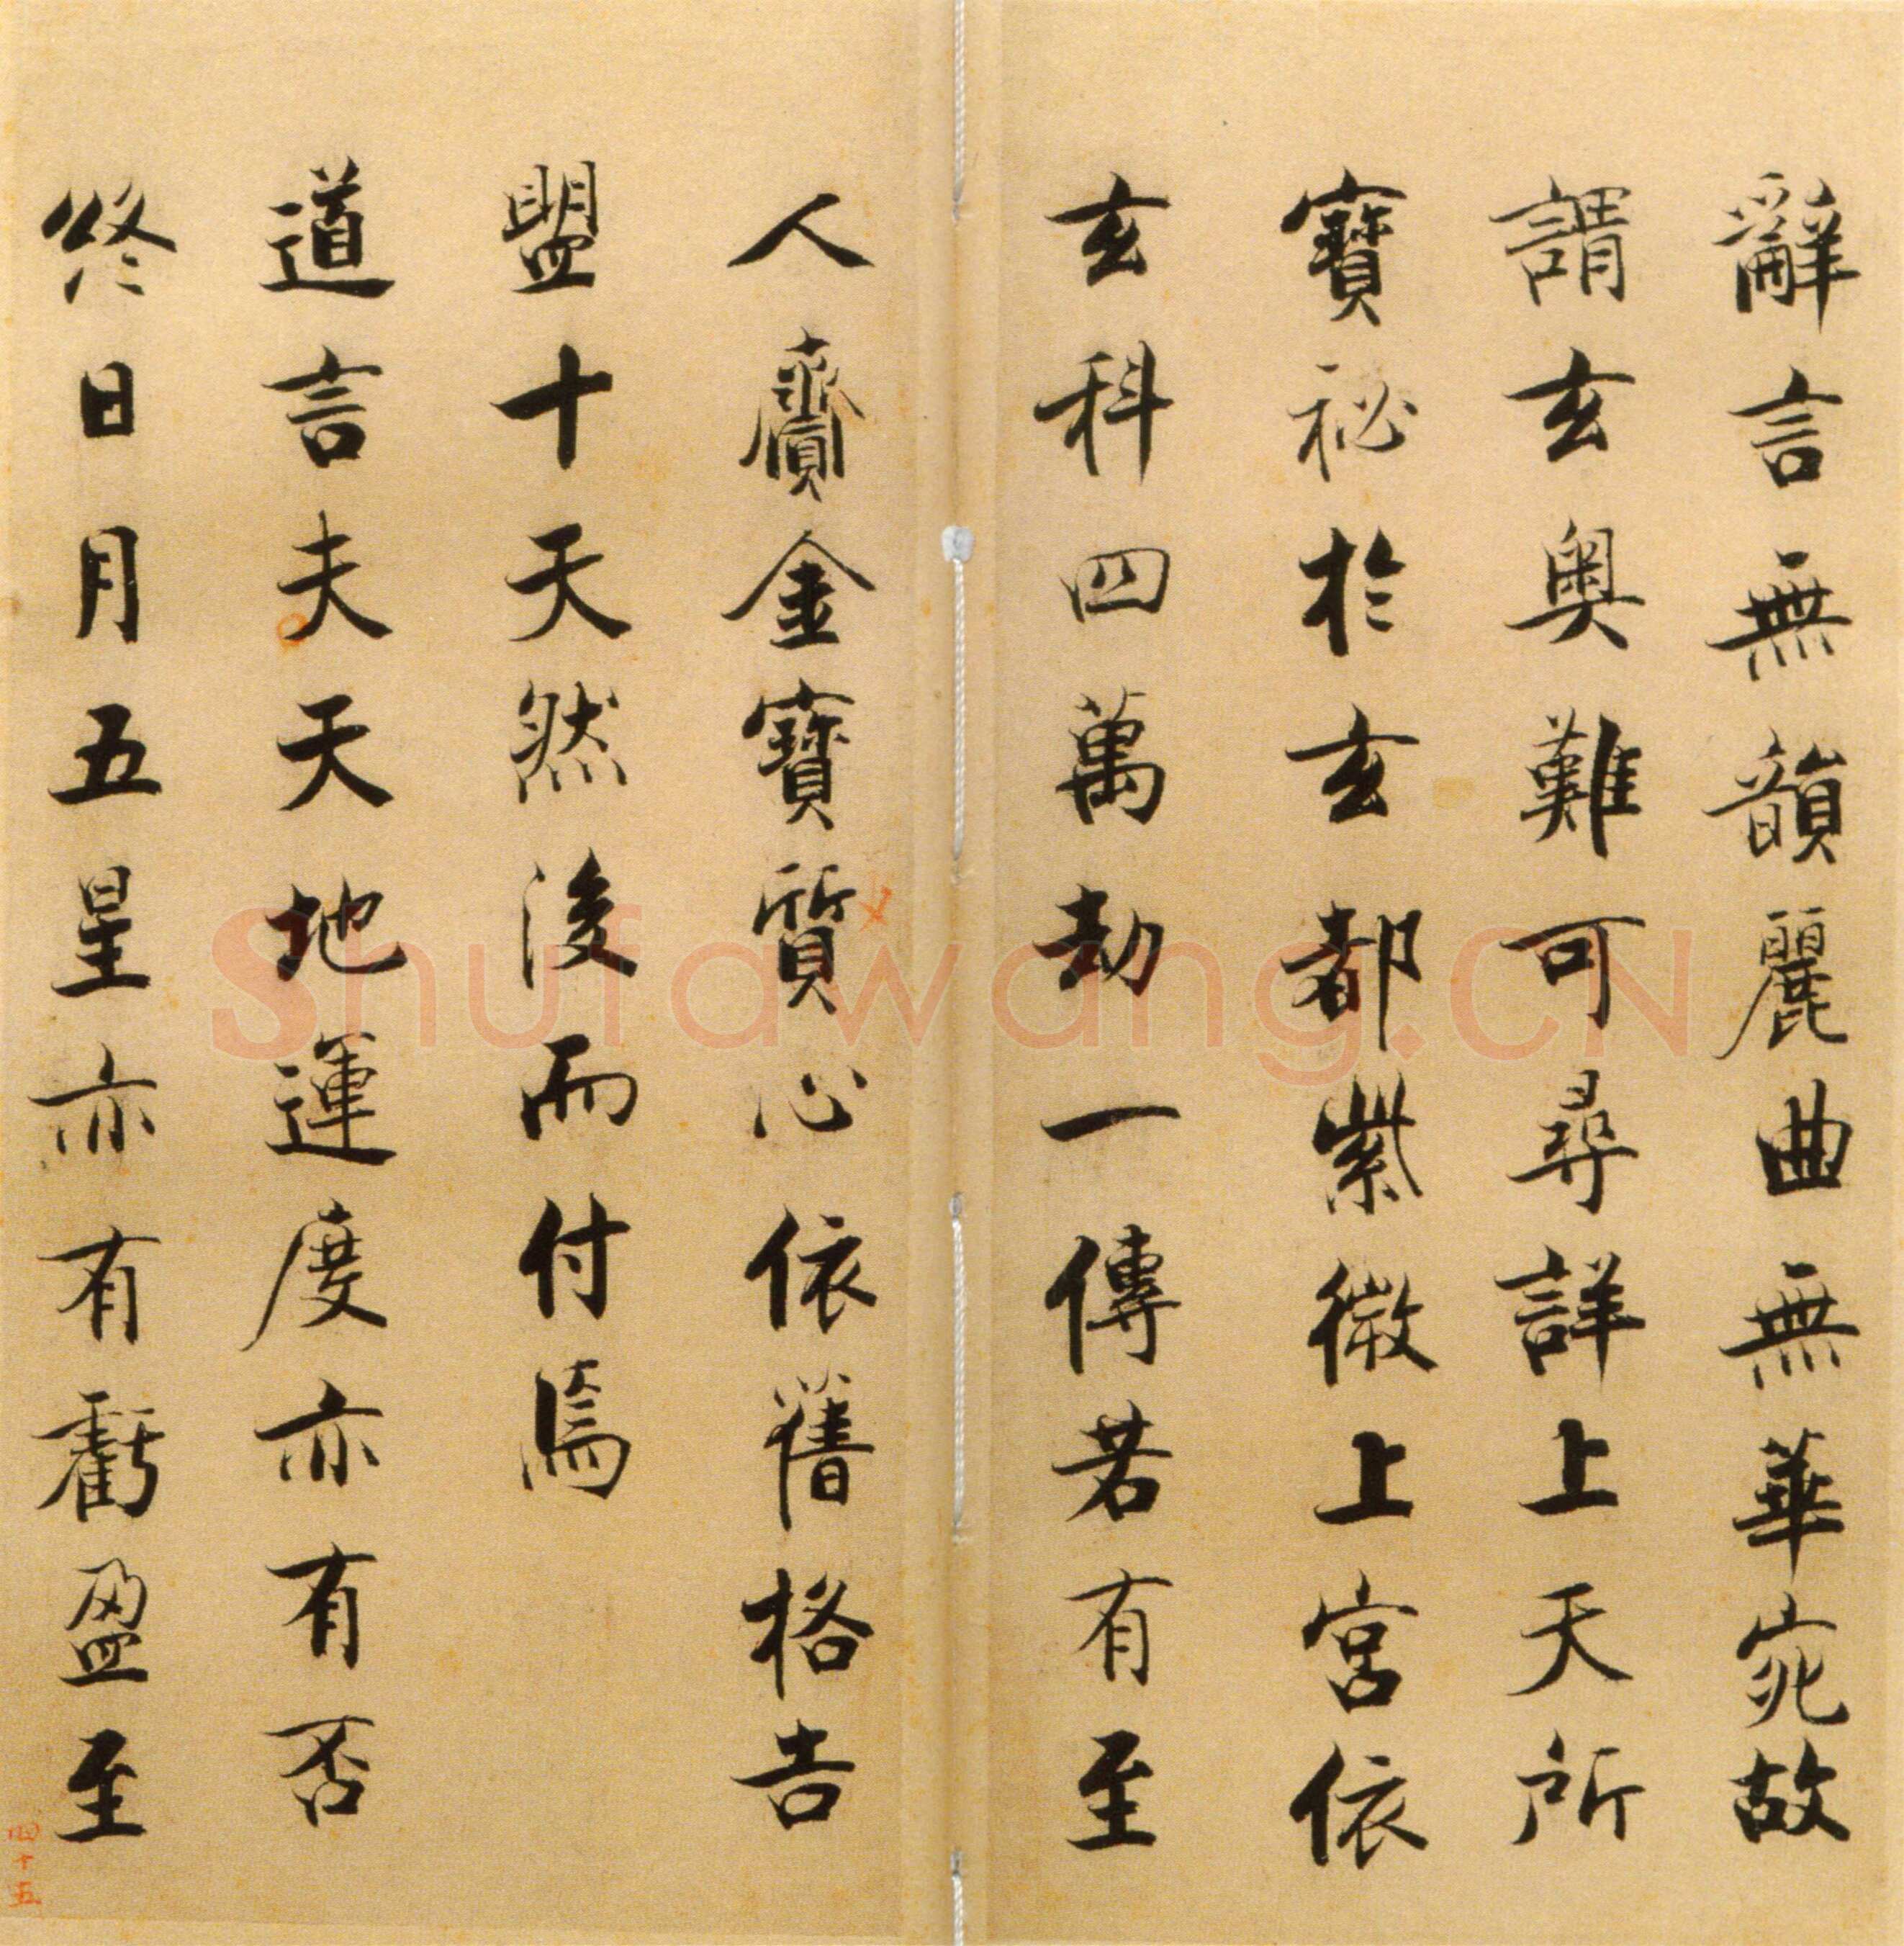 辭言無韻麗曲無華宛故
謂玄奧難可尋詳上天所
寶祕於玄都紫微上宮依
玄科四萬劫一傳若有至
人齎金寶質心依舊格告
盟十天然後而付焉
道言夫天地運度亦有否
終日月五星亦有虧盈至
四十五
Shufawang.CN